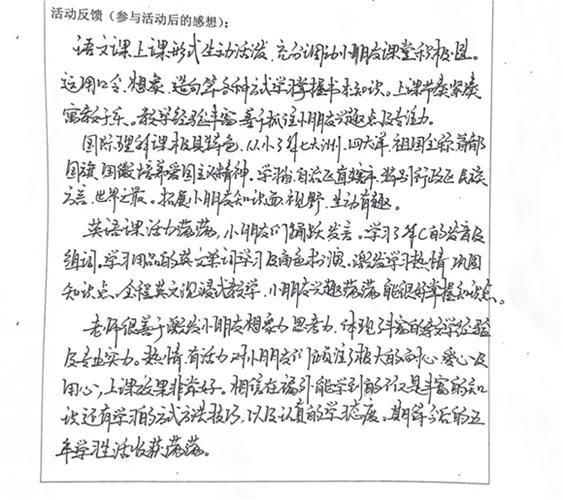 活动反馈（参与活动后的感想）：
语文课上课形式生动活泼，充分调动小朋友课堂积极性。
运用口令、想象、造句等多种方式学习掌握书本知识。上课节奏紧凑
寓教于乐。教学经验丰富善于抓住小朋友兴趣点及专注力。
国际理解课极具特色，从小了解七大洲、四大洋、祖国全称、首都
国旗、国徽培养爱国主义精神。学习省、自治区直辖市、特别行政区民族
方言、世界之最。拓展小朋友知识面、视野，生动有趣。
英语课活力满满，小朋友们踊跃发言。学习了解C的发音及
组词。学习用品的英文单词学习及角色扮演。激发学习热情、巩固
知识点、全程英文沉浸式教学，小朋友兴趣满满能很好掌握知识点。
老师很善于激发小朋友想象力思考力，体现了丰富的教学经验
及专业实力。热情有活力对小朋友们倾注了极大的耐心、爱心及
用心，上课效果非常好。相信在 能学到的不仅是丰富的知
识还有学习的方式方法技巧，以及认真的学习态度。期待今后的五
年学习生活收获满满。